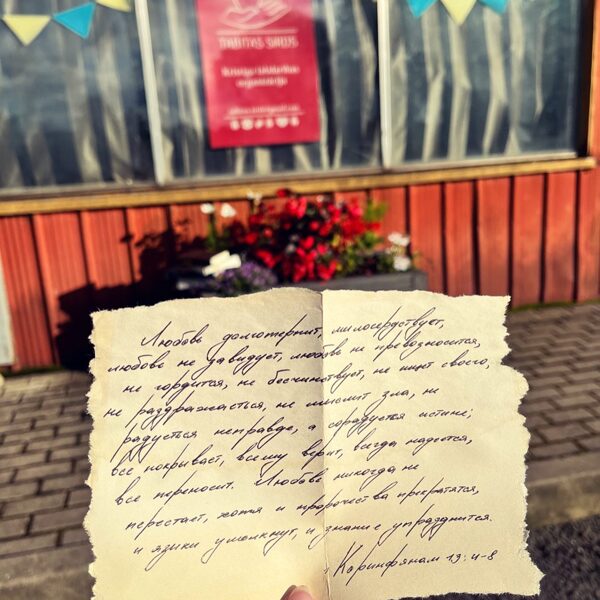 TABITAS SIRDS
Любовь долготерпит, милосердствует,
любовь не завидует, любовь не превозносится,
не гордится, не бесчинствует, не ищет своего,
не раздражается, не мыслит зла, не
радуется неправде, а сорадуется истине;
все покрывает, всему верит, всегда надеется,
все переносит. Любовь никогда не
перестает, хотя и пророчества прекратятся,
и языки умолкнут, и знание упразднится.
Коринфянам 13:4-8